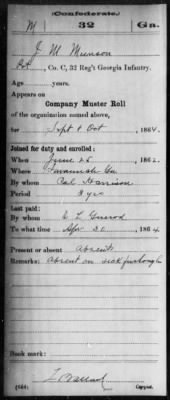 (Confederate.)
M 32 Ga.
J. M. Munson
Pvt, Co. C, 32 Reg't Georgia Infantry.
Age years.
Appears on
Company Muster Roll
of the organization named above,
for Sept & Oct, 1864.
Joined for duty and enrolled:
When June 25, 1862.
Where Savannah Ga
By whom Col Harrison
Period 3 yrs
Last paid:
By whom C L Guerod
To what time Apr 30, 1864
Present or absent Absent
Remarks: Absent on sick furlough
Book mark:
(644) Copyist.